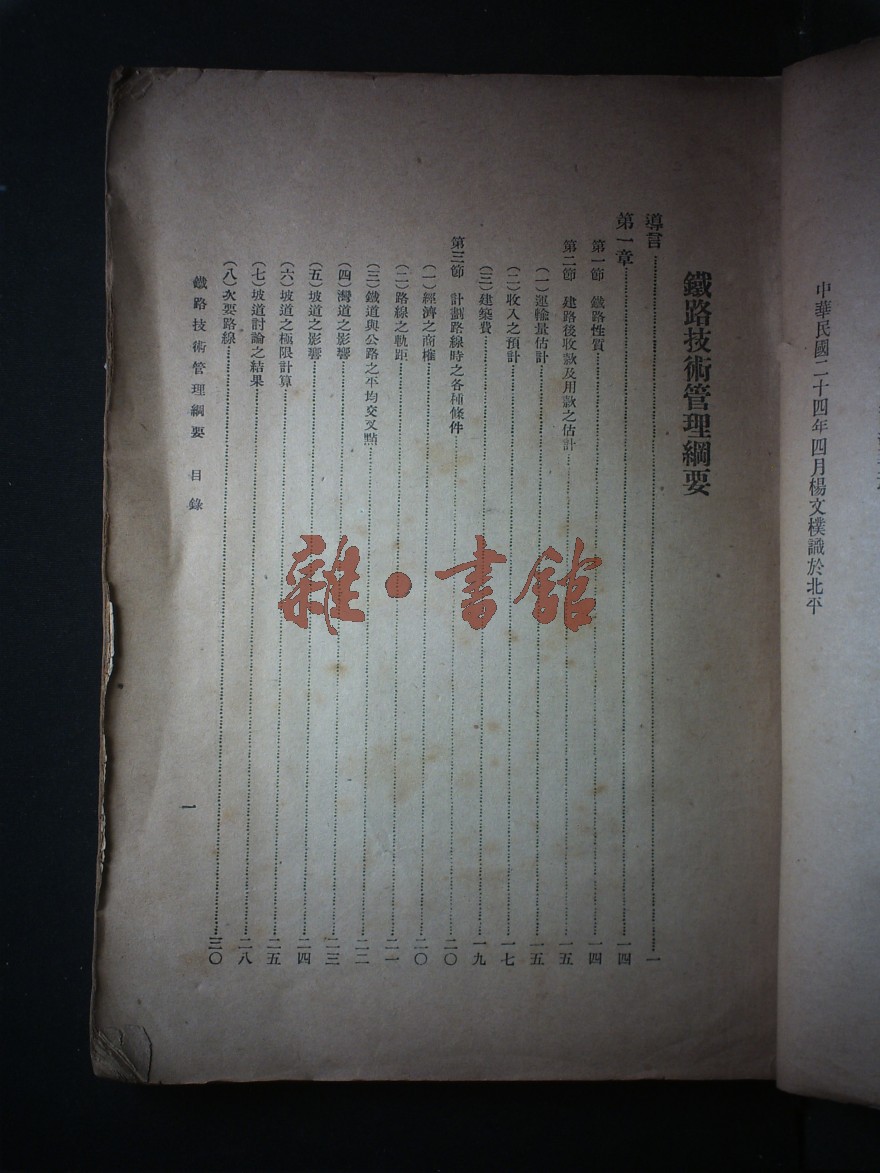 中華民國二十四年四月楊文樸識於北平
鐵路技術管理綱要
導言……一
第一章……一四
第一節 鐵路性質……一四
第二節 建路後收款及用款之估計……一五
(一)運輸量估計……一五
(二)收入之預計……一七
(三)建築費……一九
第三節 計劃路線時之各種條件……二〇
(一)經濟之商榷……二〇
(二)路線之軌距……二一
(三)鐵道與公路之平均交叉點……二二
(四)灣道之影響……二三
(五)坡道之影響……二四
(六)坡道之極限計算……二五
(七)坡道討論之結果……二八
(八)次要路線……三〇
鐵路技術管理綱要 目錄
一
雜·書館